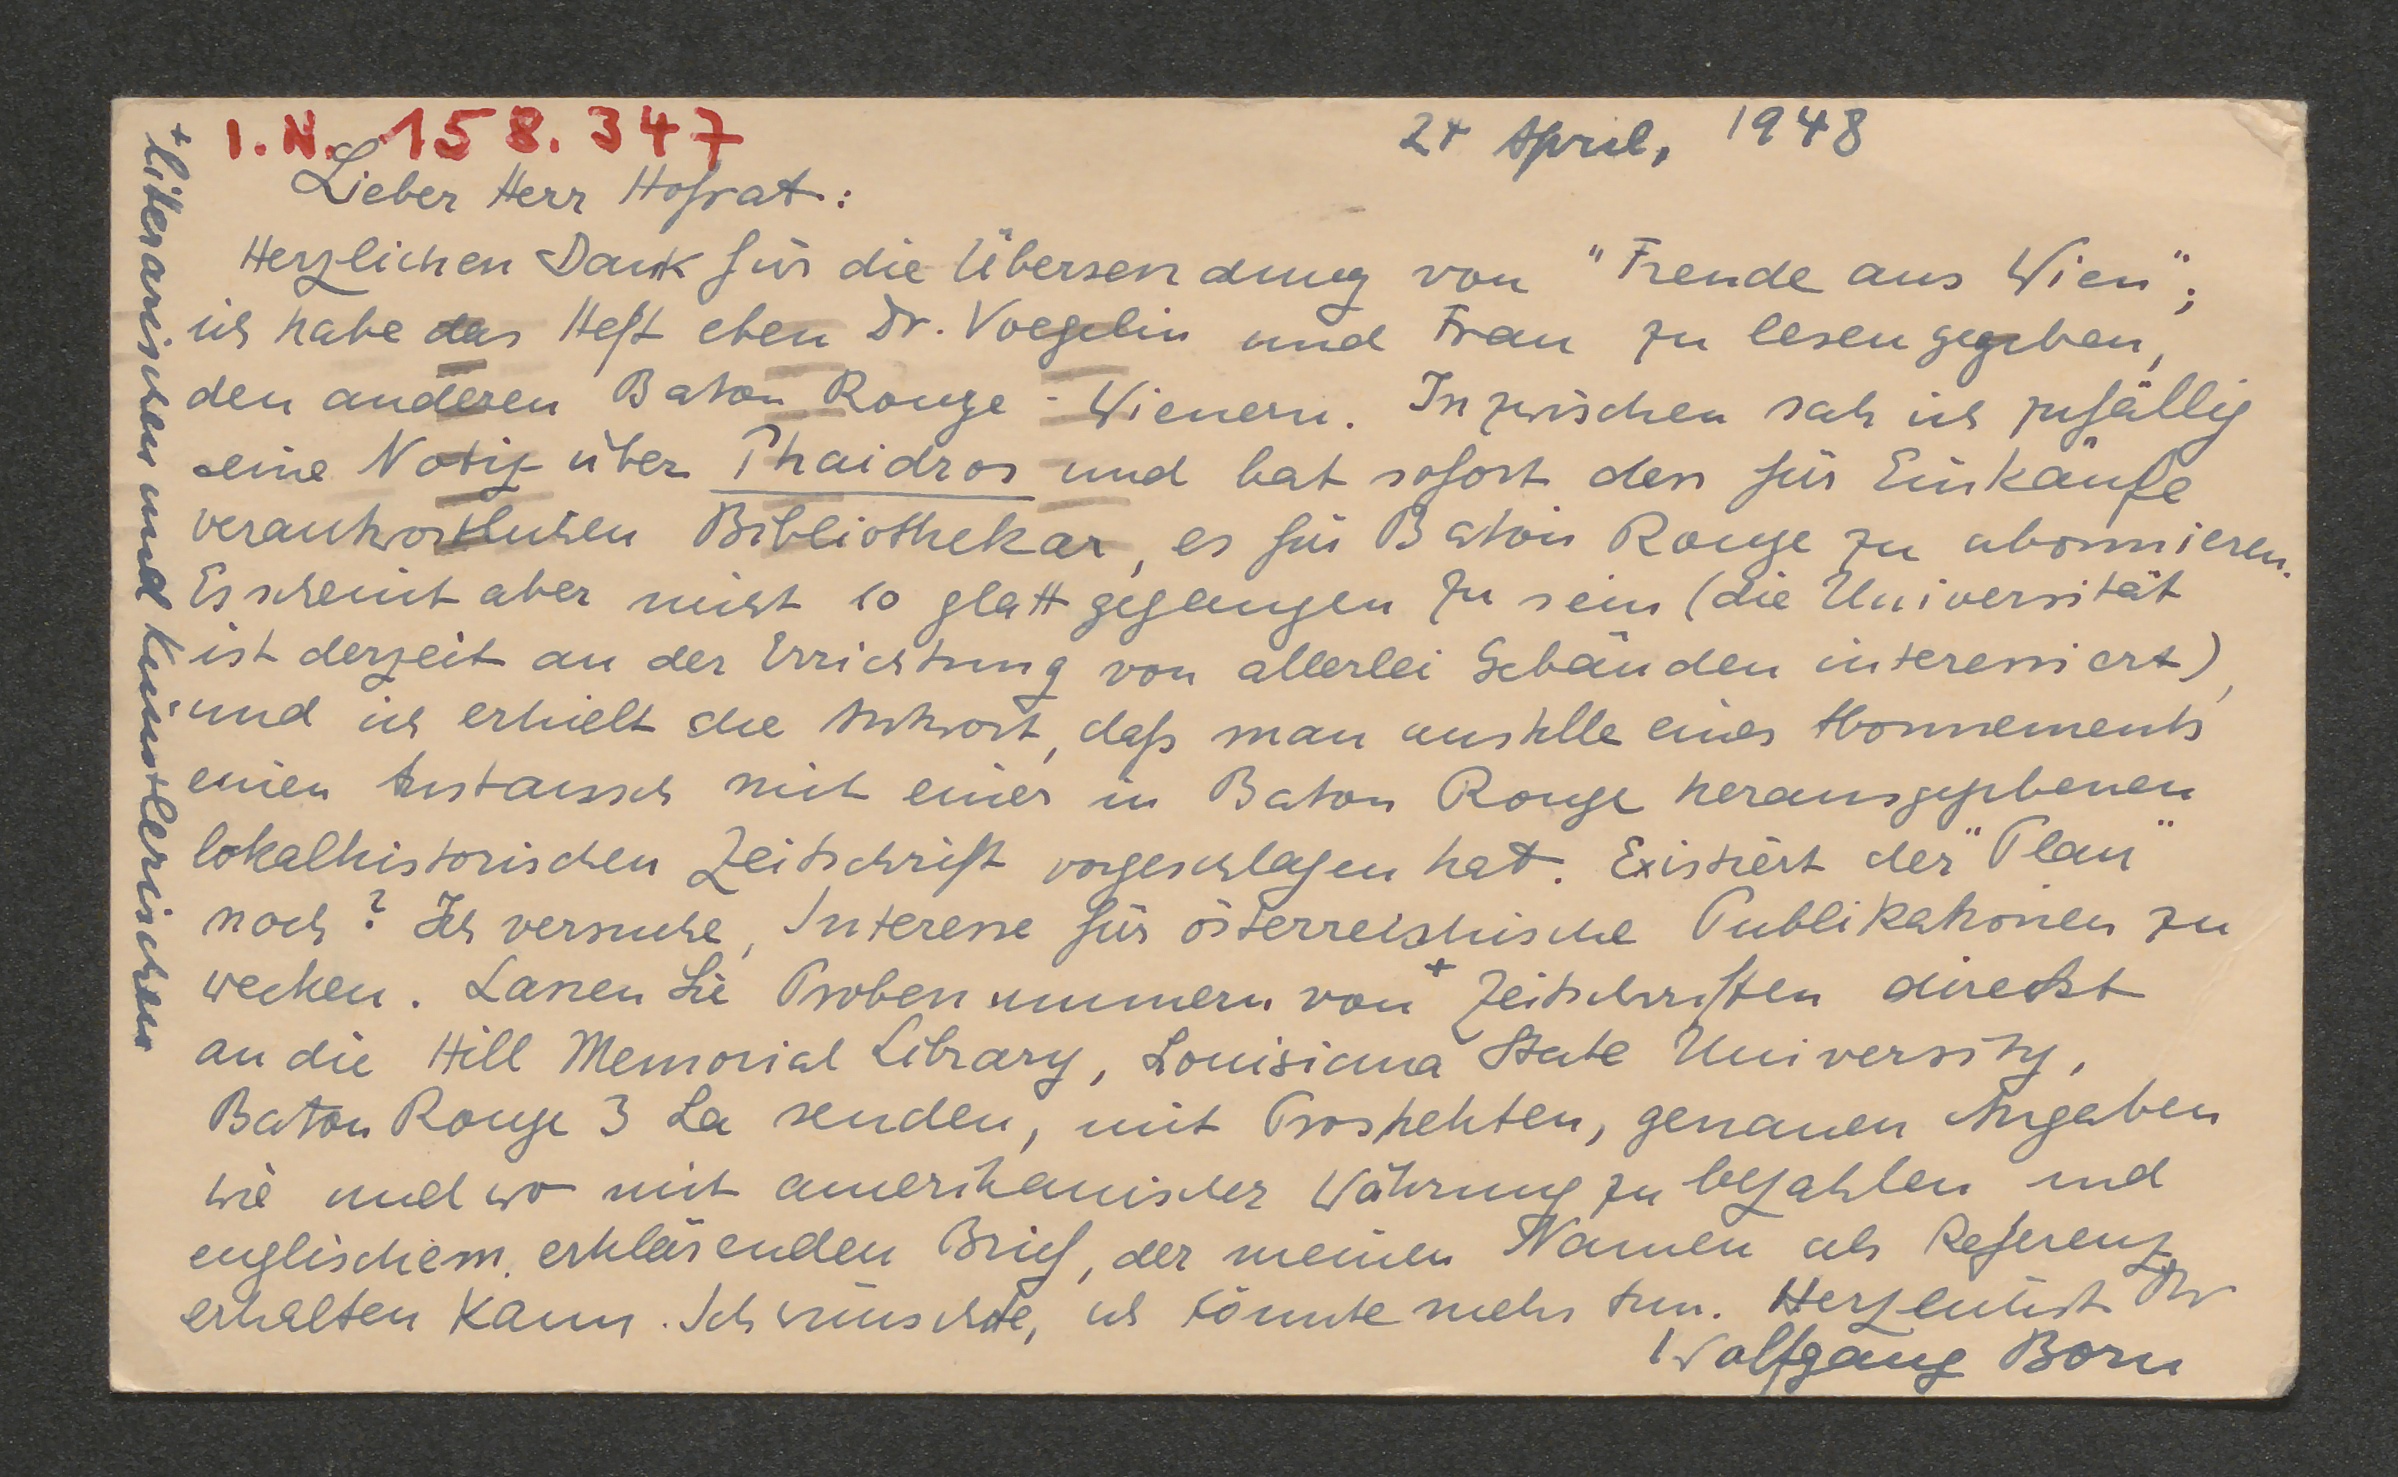 I.N. 158.347
24 April, 1948
Lieber Herr Hofrat:
Herzlichen Dank für die Übersendung von "Freude aus Wien";
ich habe das Heft eben Dr. Voegelin und Frau zu lesen gegeben,
den anderen Baton Rouge-Wienern. Inzwischen sah ich zufällig
eine Notiz über Phaidros und bat sofort den für Einkäufe
verantwortlichen Bibliothekar, es für Baton Rouge zu abonnieren.
Es scheint aber nicht so glatt gegangen zu sein (die Universität
ist derzeit an der Errichtung von allerlei Gebäuden interessiert),
und ich erhielt die Antwort, daß man anstelle eines Abonnements
einen Austausch mit einer in Baton Rouge herausgegebenen
lokalhistorischen Zeitschrift vorgeschlagen hat. Existiert der "Plan"
noch? Ich versuche, Interesse für österreichische Publikationen zu
wecken. Lassen Sie Probenummern von + Zeitschriften direkt
an die Hill Memorial Library, Louisiana State University,
Baton Rouge 3 La senden, mit Prospekten, genauen Angaben
wie und wo mit amerikanischer Währung zu bezahlen und
englischem erklärenden Brief, der meinen Namen als Referenz
erhalten kann. Ich wünschte, ich könnte mehr tun. Herzlichst Ihr
Wolfgang Born
+ literarischen und künstlerischen